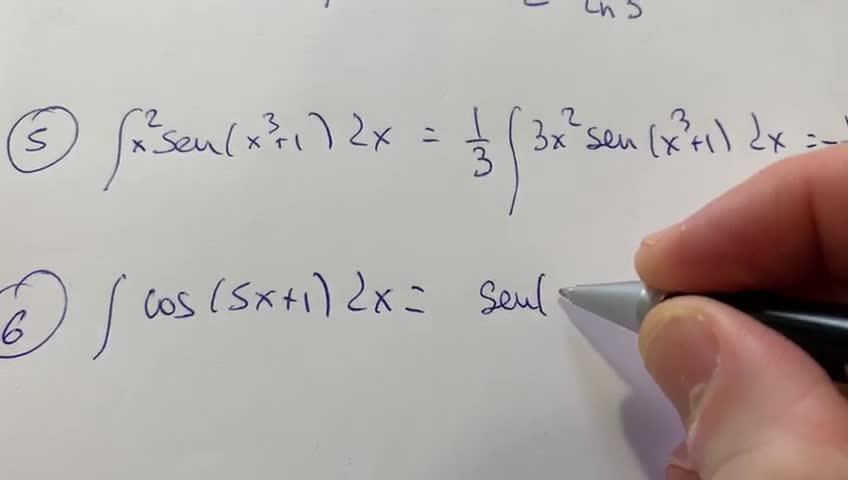 Ln 3
5 ∫x² sen(x³+1) dx = 1/3 ∫3x² sen(x³+1) dx = -
6 ∫ cos(5x+1) dx = sen(